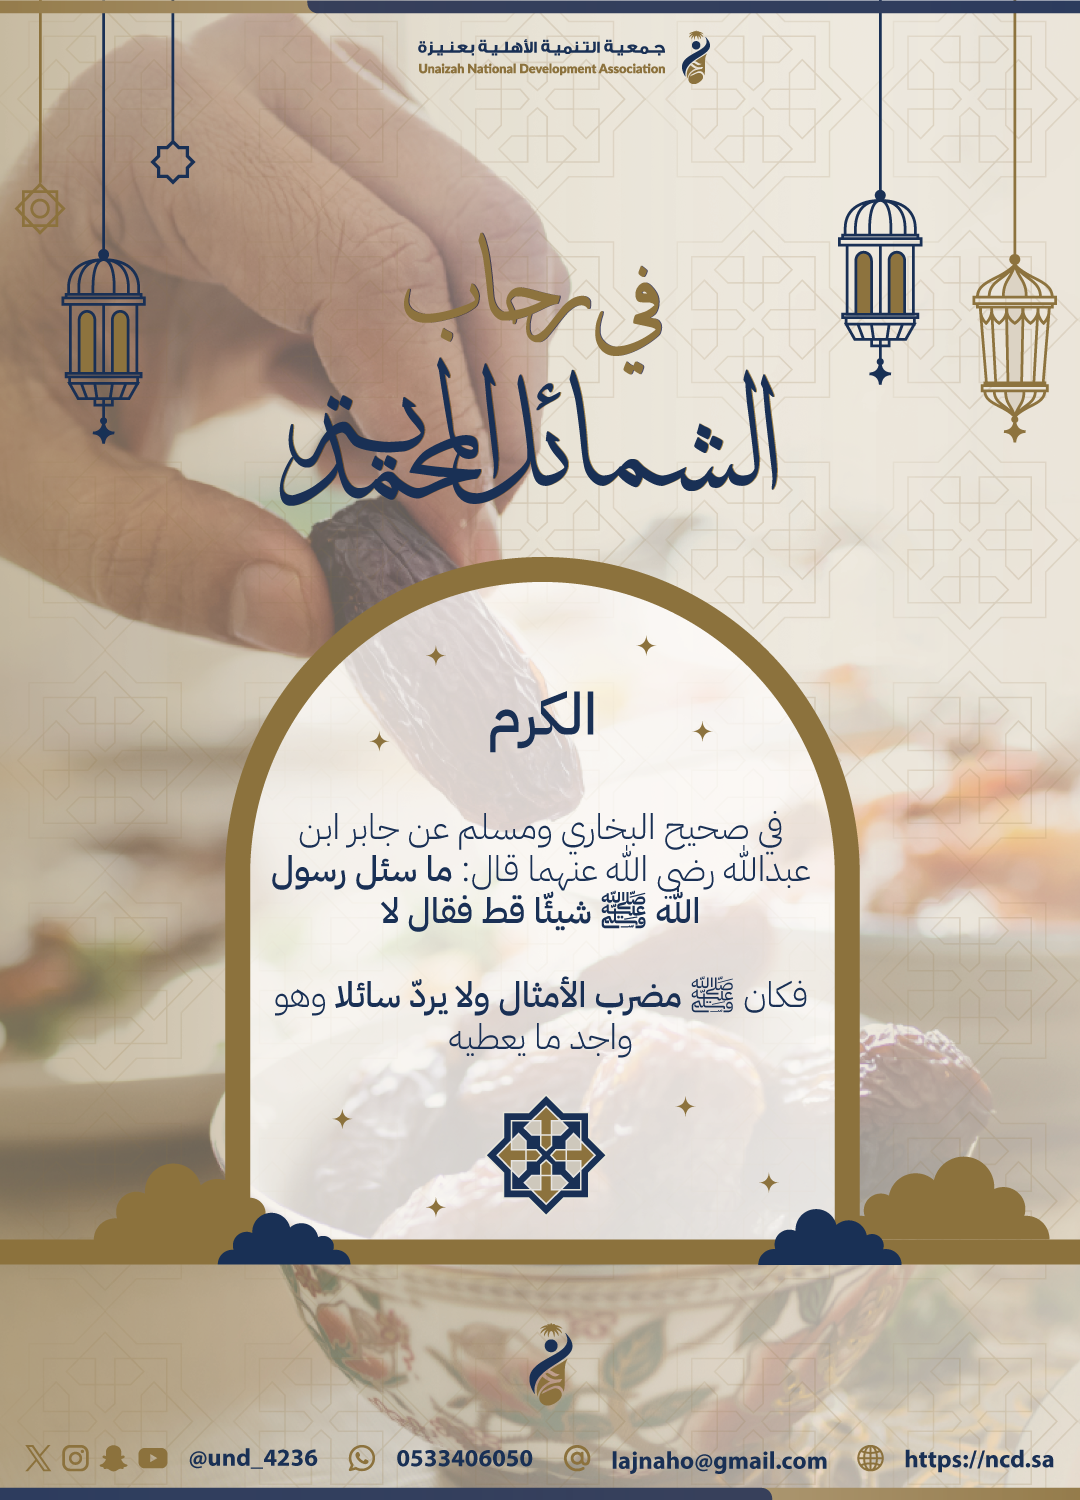 جمعية التنمية الأهلية بعنيزة
Unaizah National Development Association
في رحاب
الشمائل المحمدية
الكرم
في صحيح البخاري ومسلم عن جابر ابن
عبدالله رضي الله عنهما قال: ما سئل رسول
الله ﷺ شيئًا قط فقال لا
فكان ﷺ مضرب الأمثال ولا يردّ سائلا وهو
واجد ما يعطيه
@und_4236 0533406050 lajnaho@gmail.com https://ncd.sa